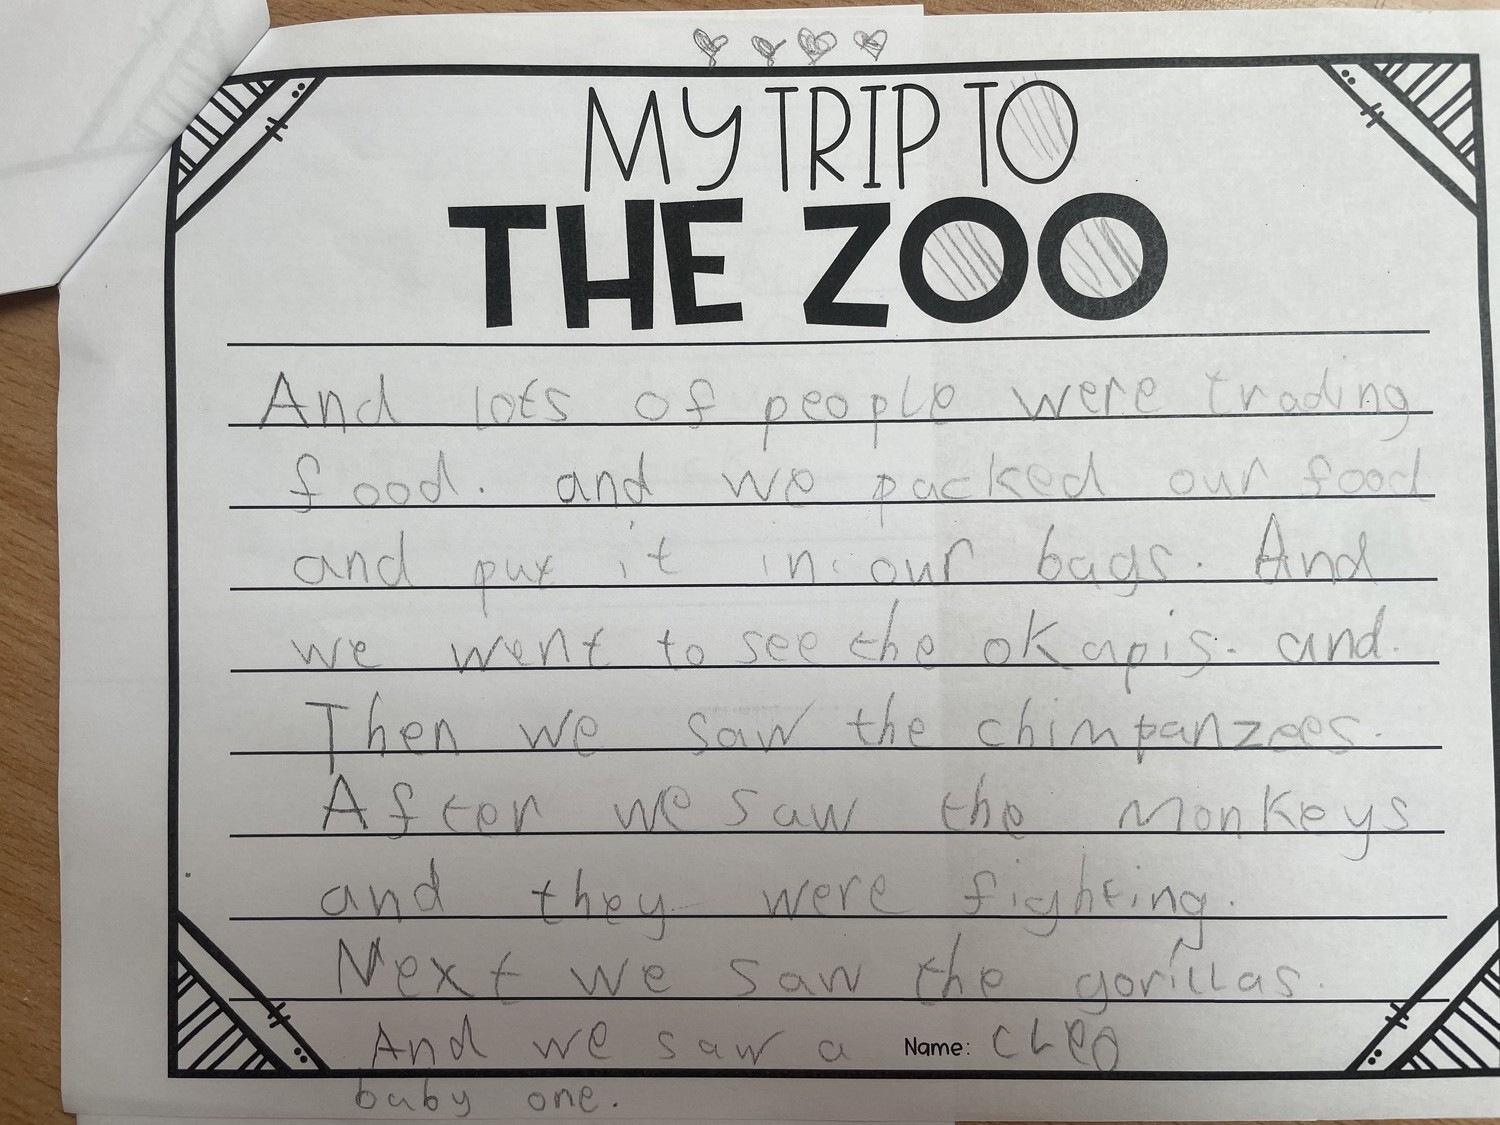 MY TRIP TO
THE ZOO
And lots of people were trading
food. and we packed our food
and put it in our bags. And
we went to see the okapis. and.
Then we saw the chimpanzees.
After we saw the Monkeys
and they were fighting.
Next we saw the gorillas.
And we saw a
baby one.
Name: cleo